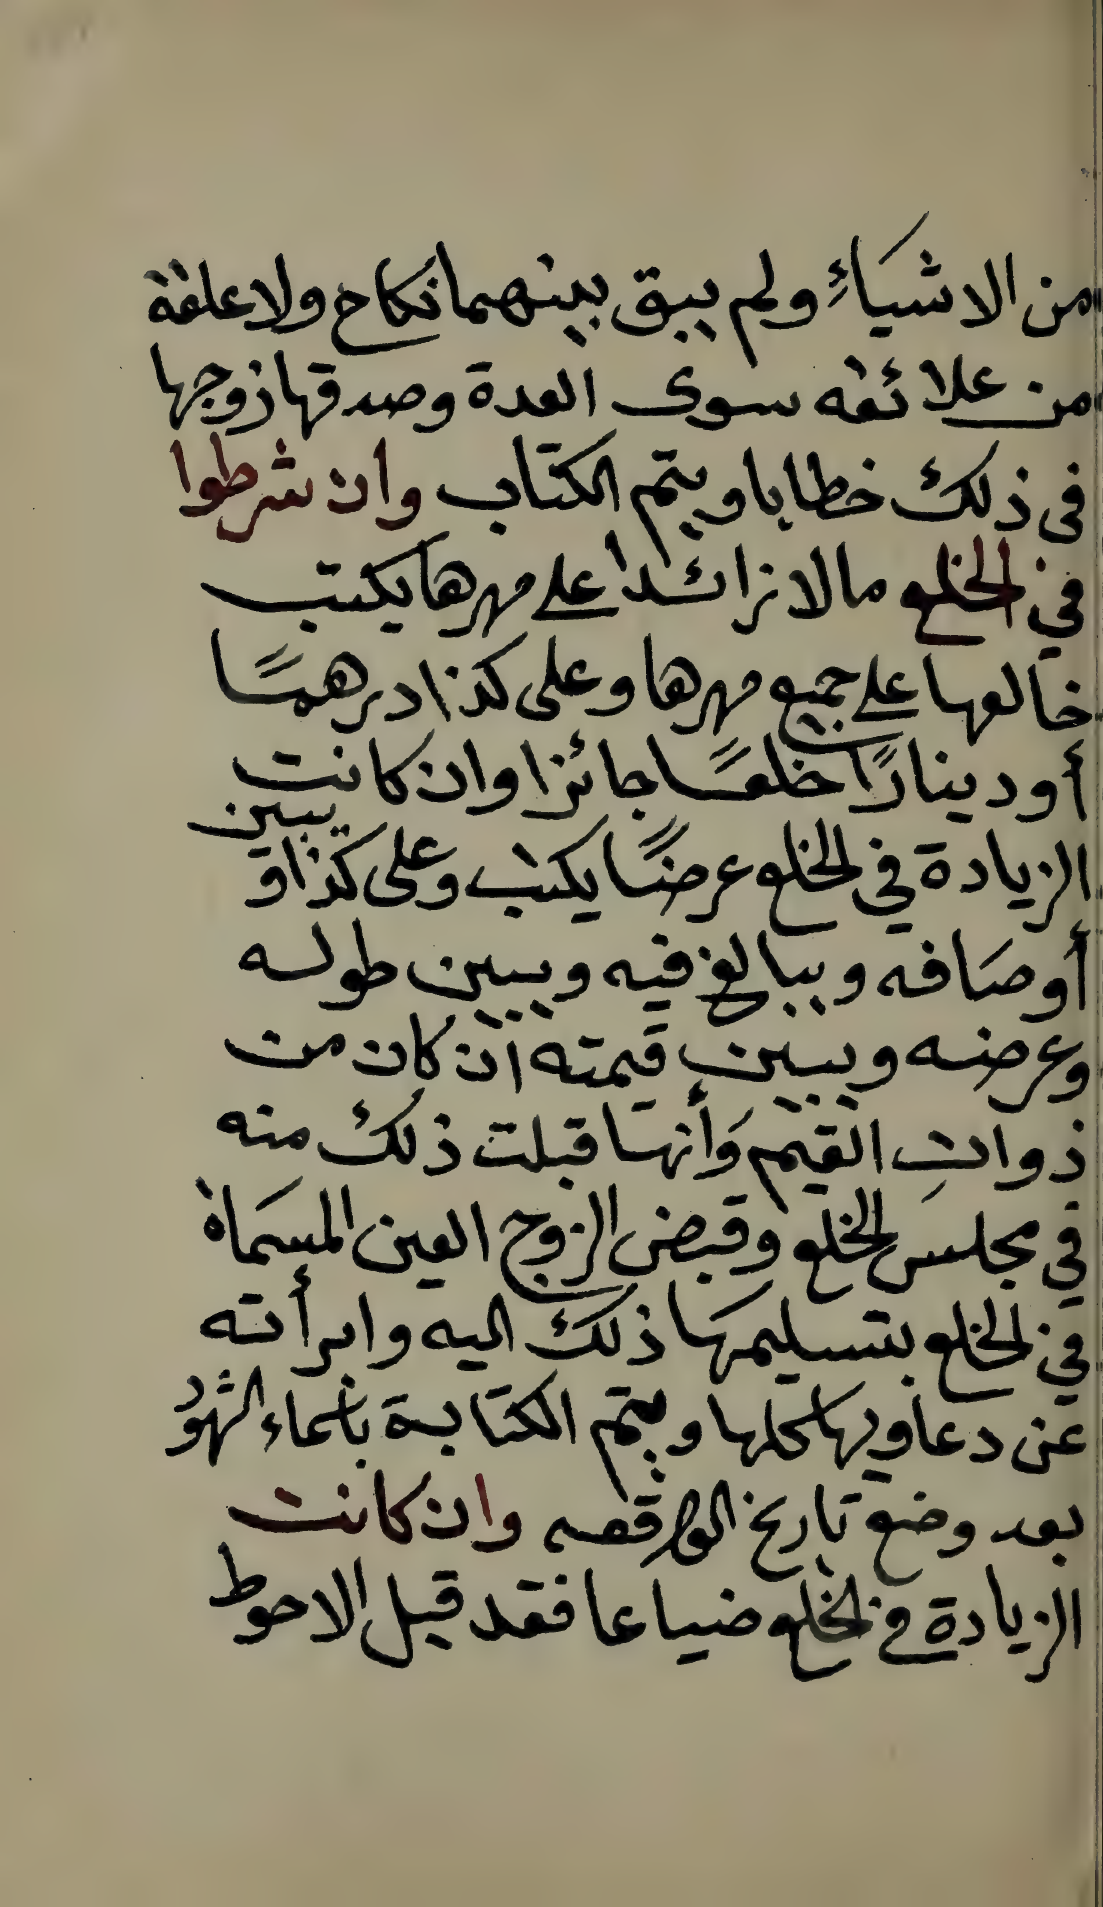 من الاشياءِ ولم يبق بينهما نكاح ولا علقة
من علائقه سوى العدة وصدقها زوجها
فى ذلك خطابا ويتم الكتاب وان شرطوا
في الخلع مالا زائدا على مهرها يكتب
خالعها على جميع مهرها وعلى كذا درهمًا
أو دينارًا خلعًا جائزا وان كانت
الزيادة في الخلع عرضًا يكتب وعلى كذا ويبين
أوصافه ويبالغ فيه ويبين طوله
وعرضه ويبين قيمته ان كان من
ذوات القيم وَأنها قبلت ذلك منه
في مجلس الخلع وقبض الزوج العين المسماة
في الخلع بتسليمها ذلك اليه وابرأته
عن دعاويها كلها ويتم الكتابة باسماء الشهود
بعد وضع تاريخ وان كانت
الزيادة في الخلع ضياعا فقد قيل الاحوط